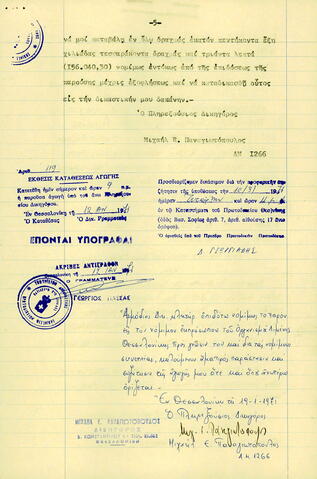 - 5 -
νά μοί καταβάλη ἐν ὅλῳ δραχμάς ἑκατόν πεντήκοντα ἕξη
χιλιάδας τεσσαράκοντα δραχμάς καί τριάντα λεπτά
(156.040,30) νομίμως ἐντόκως ἀπό τῆς ἐπιδόσεως τῆς
παρούσης μέχρις ἐξοφλήσεως καί νά καταδικασθῇ οὗτος
εἰς τήν δικαστικήν μου δαπάνην.
Ὁ Πληρεξούσιος Δικηγόρος
Μιχαήλ Ε. Παναγιωτόπουλος
ΑΜ 1266
Ἀριθ 119
ΕΚΘΕΣΙΣ ΚΑΤΑΘΕΣΕΩΣ ΑΓΩΓΗΣ
Κατετέθη τήν σήμερον καί ὥραν 9 π.μ.
ἡ παροῦσα ἀγωγή ὑπό τοῦ
Δικηγόρου.
Ἐν Θεσσαλονίκῃ 18 ΙΑΝ 1971
Ὁ Καταθέσας Ὁ Δικ. Γραμματεύς
ΕΠΟΝΤΑΙ ΥΠΟΓΡΑΦΑΙ
Προσδιορίζομεν δικάσιμον διά τήν
ζήτησιν τῆς ὑποθέσεως τήν 10/3/1971
ἡμέραν καί ὥραν 9 π.μ.
ἐν τῷ Καταστήματι τοῦ Πρωτοδικείου Θεσ)νίκης
(ὁδός Βασ. Σοφίας ἀριθ. 7, ἀριθ. αἰθούσης 17 ὅου
ὀρόφου).
Δ. Γεωργιάδης
ΑΚΡΙΒΕΣ ΑΝΤΙΓΡΑΦΟΝ
Θεσσαλονίκη τῇ 19 ΙΑΝ 1971
Ο ΓΡΑΜΜΑΤΕΥΣ
ΓΕΩΡΓΙΟΣ
Ἁρμόδιος Δικ. Κλητήρ ἐπιδότω νομίμως τό παρόν
εἰς τόν νόμιμον ἐκπρόσωπον τοῦ Ὀργανισμοῦ Λιμένος
Θεσσαλονίκης πρός γνῶσίν του καί διά τάς νομίμους
συνεπείας, καλούμενον ἅμα πρός παράστασιν καί
συζήτησιν τῆς ἀγωγῆς μου ὅτε καί ὅπου ἀνωτέρω
ὁρίζεται.
Ἐν Θεσσαλονίκῃ τῇ 19-1-1971
Ὁ Πληρεξούσιος Δικηγόρος
Μιχαήλ Ε. Παναγιωτόπουλος
Α.Μ. 1266
ΜΙΧΑΗΛ Ε. ΠΑΝΑΓΙΩΤΟΠΟΥΛΟΣ
ΔΙΚΗΓΟΡΟΣ
ΘΕΣΣΑΛΟΝΙΚΗ